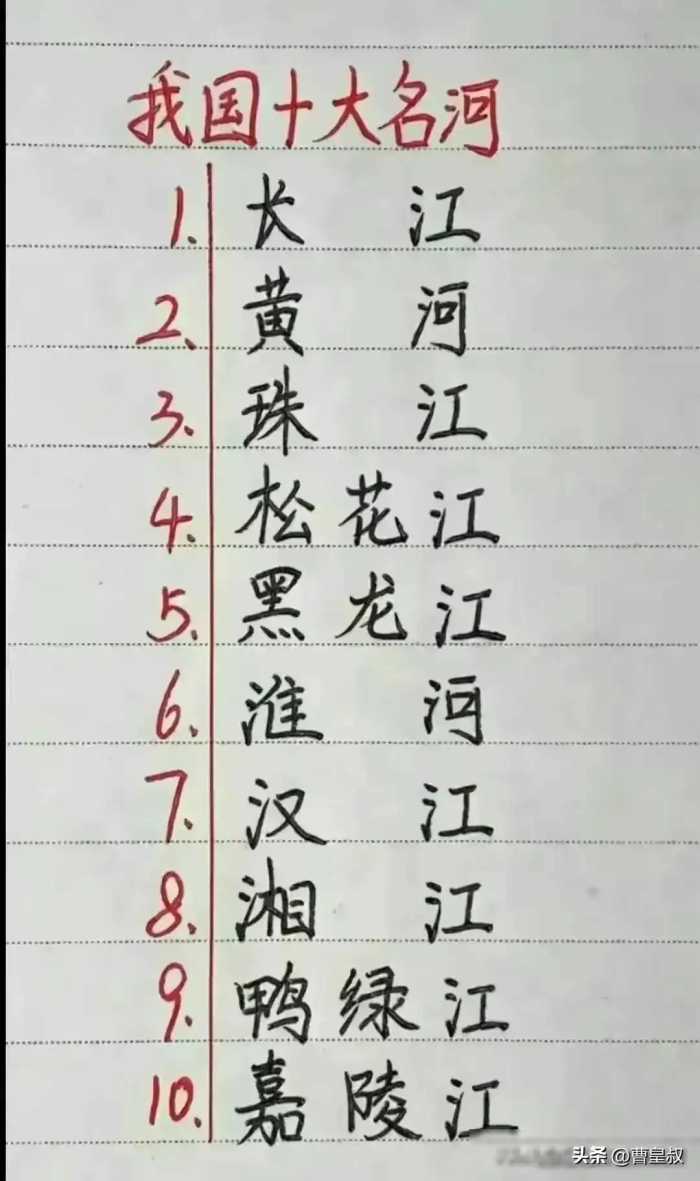 我国十大名河
1. 长江
2. 黄河
3. 珠江
4. 松花江
5. 黑龙江
6. 淮河
7. 汉江
8. 湘江
9. 鸭绿江
10. 嘉陵江
头条 @曹皇叔